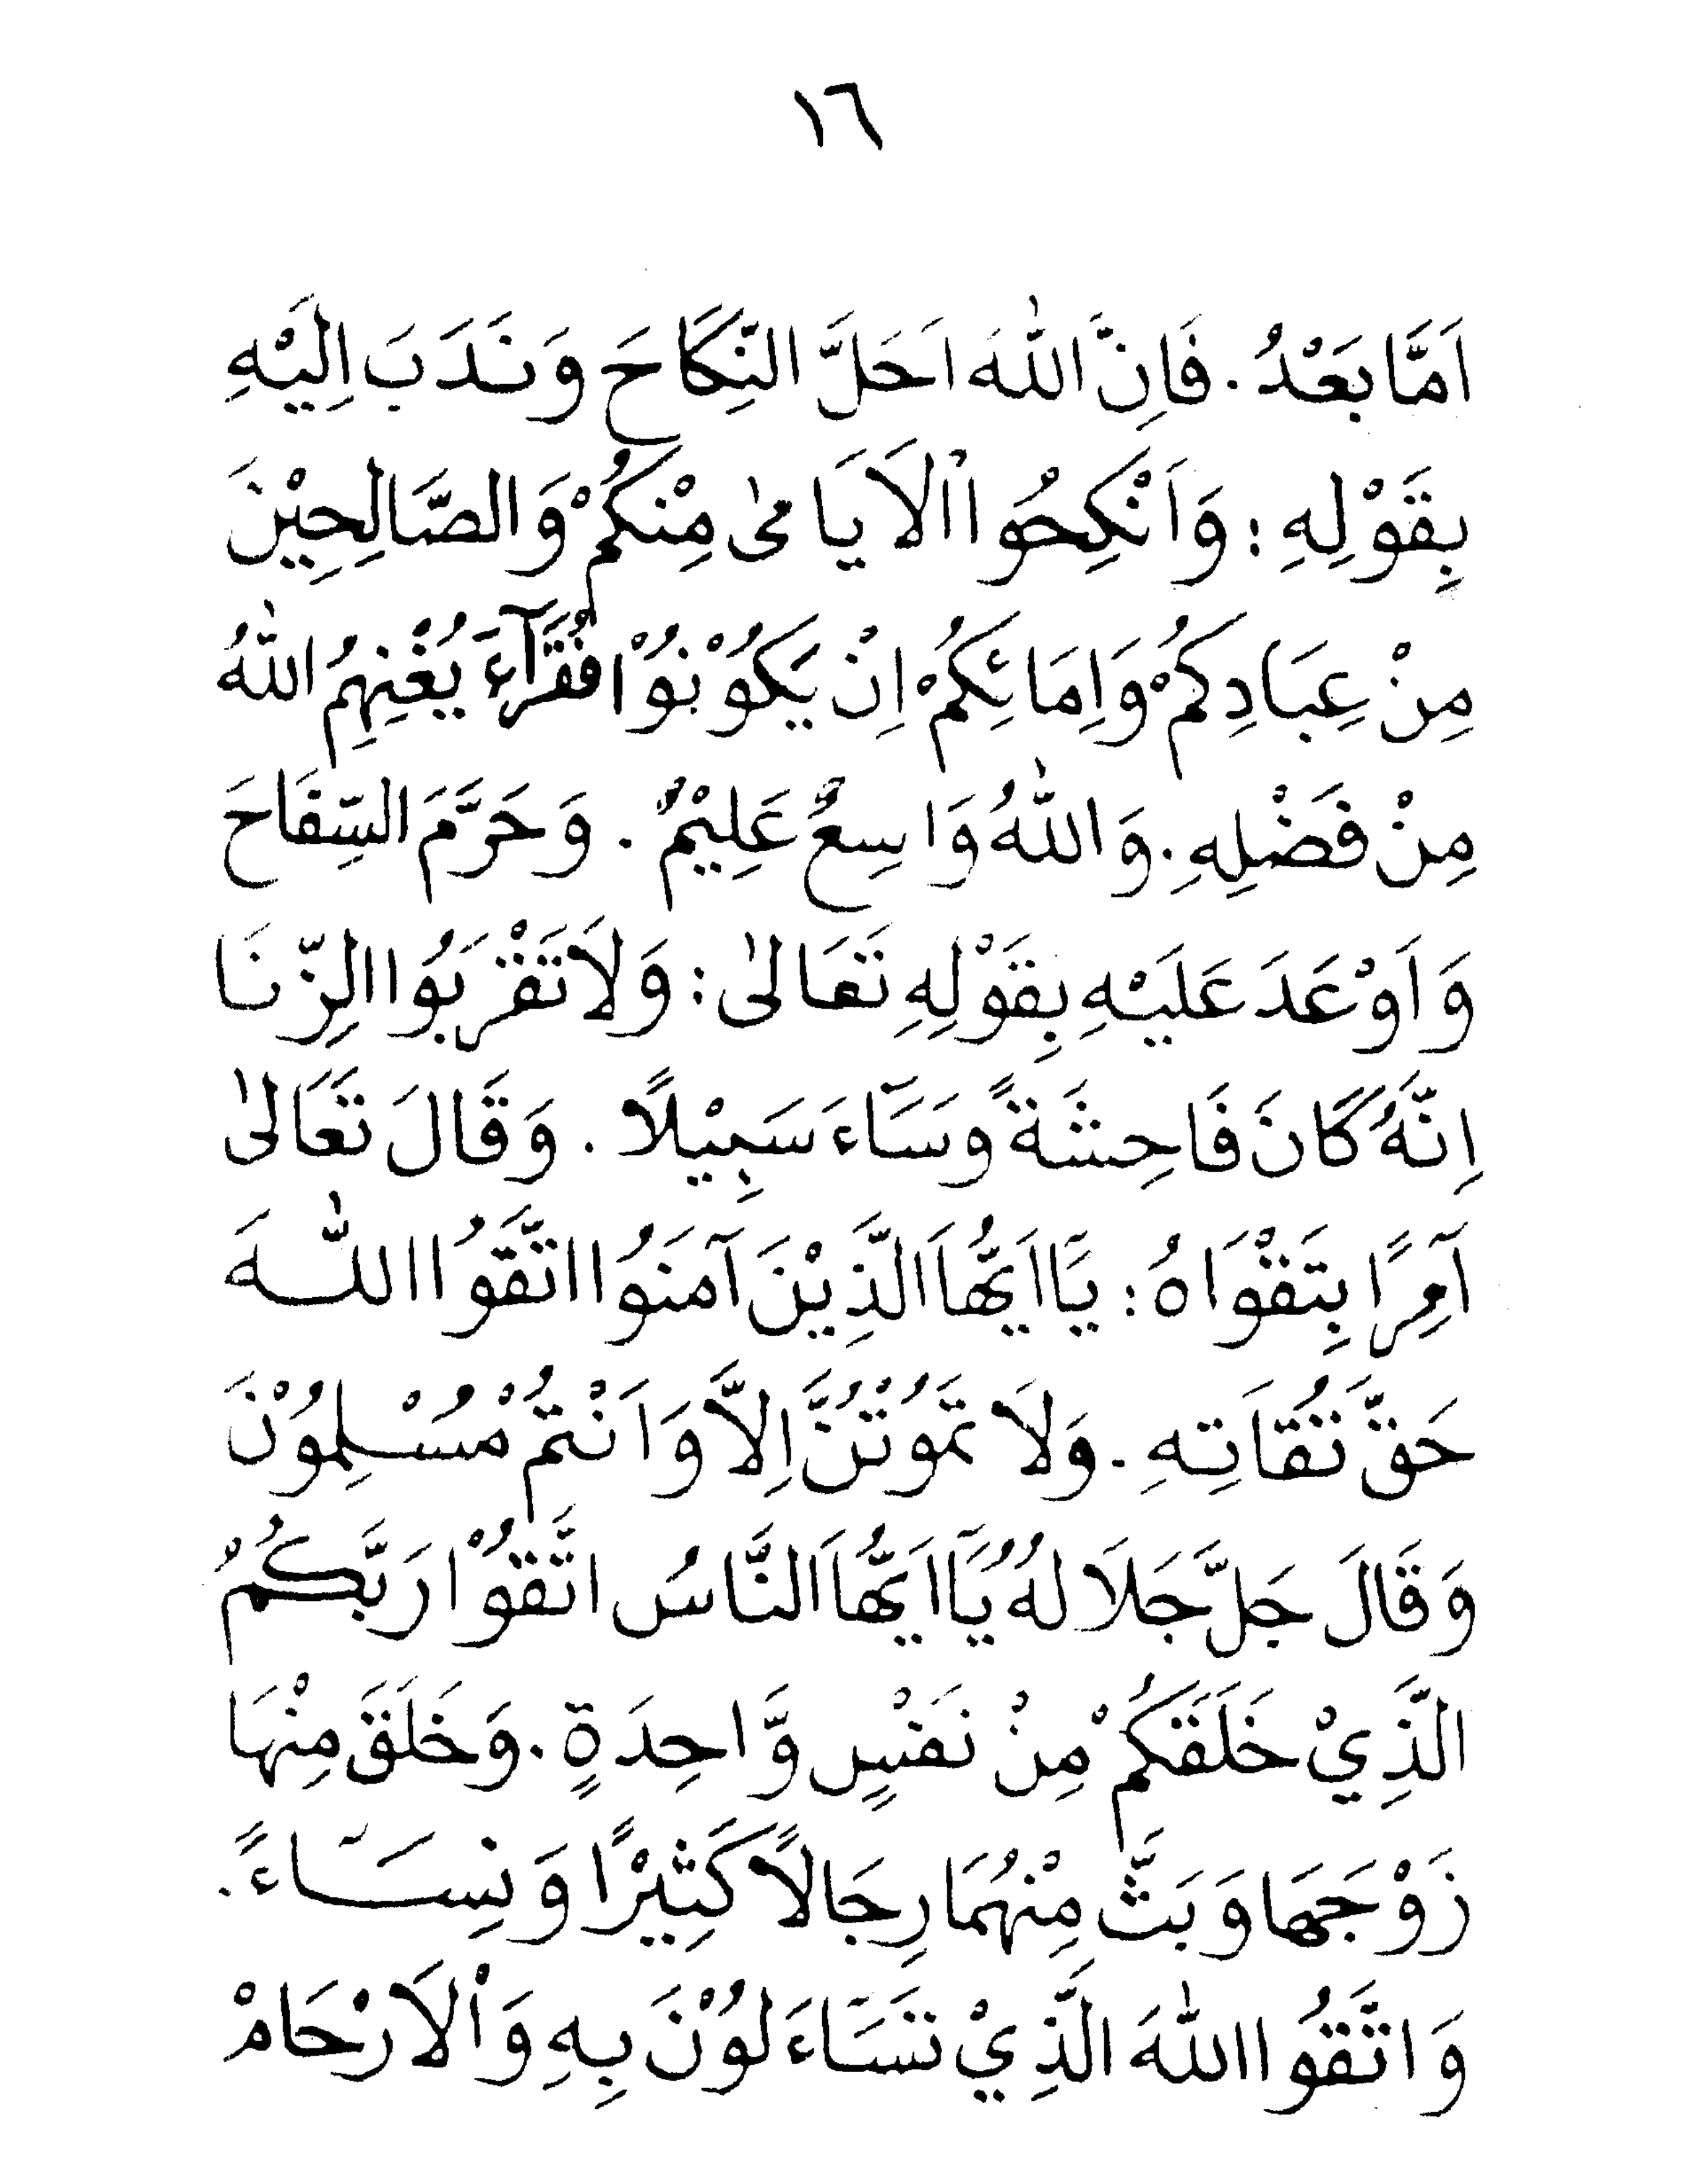 ١٦
اَمَّا بَعْدُ. فَاِنَّ اللهَ اَحَلَّ النِّكَاحَ وَنَدَبَ اِلَيْهِ
بِقَوْلِهِ : وَاَنْكِحُوا اْلاَيَامىٰ مِنْكُمْ وَالصَّالِحِيْنَ
مِنْ عِبَادِكُمْ وَاِمَائِكُمْ اِنْ يَكُوْنُوْا فُقَرَآءَ يُغْنِهِمُ اللهُ
مِنْ فَضْلِهِ. وَاللهُ وَاسِعٌ عَلِيْمٌ. وَحَرَّمَ السِّفَاحَ
وَاَوْعَدَ عَلَيْهِ بِقَوْلِهِ تَعَالىٰ : وَلاَ تَقْرَبُوا الزِّنَا
اِنَّهُ كَانَ فَاحِشَةً وَسَآءَ سَبِيْلًا. وَقَالَ تَعَالىٰ
آمِرًا بِتَقْوَاهُ : يَآاَيُّهَا الَّذِيْنَ آمَنُوا اتَّقُوا اللهَ
حَقَّ تُقَاتِهِ. وَلاَ تَمُوْتُنَّ اِلاَّ وَاَنْتُمْ مُسْلِمُوْنَ
وَقَالَ جَلَّ جَلَالُهُ يَآاَيُّهَا النَّاسُ اتَّقُوْا رَبَّكُمُ
الَّذِيْ خَلَقَكُمْ مِنْ نَفْسٍ وَّاحِدَةٍ. وَخَلَقَ مِنْهَا
زَوْجَهَا وَبَثَّ مِنْهُمَا رِجَالًا كَثِيْرًا وَنِسَآءً.
وَاتَّقُوا اللهَ الَّذِيْ تَسَآءَلُوْنَ بِهِ وَاْلاَرْحَامْ